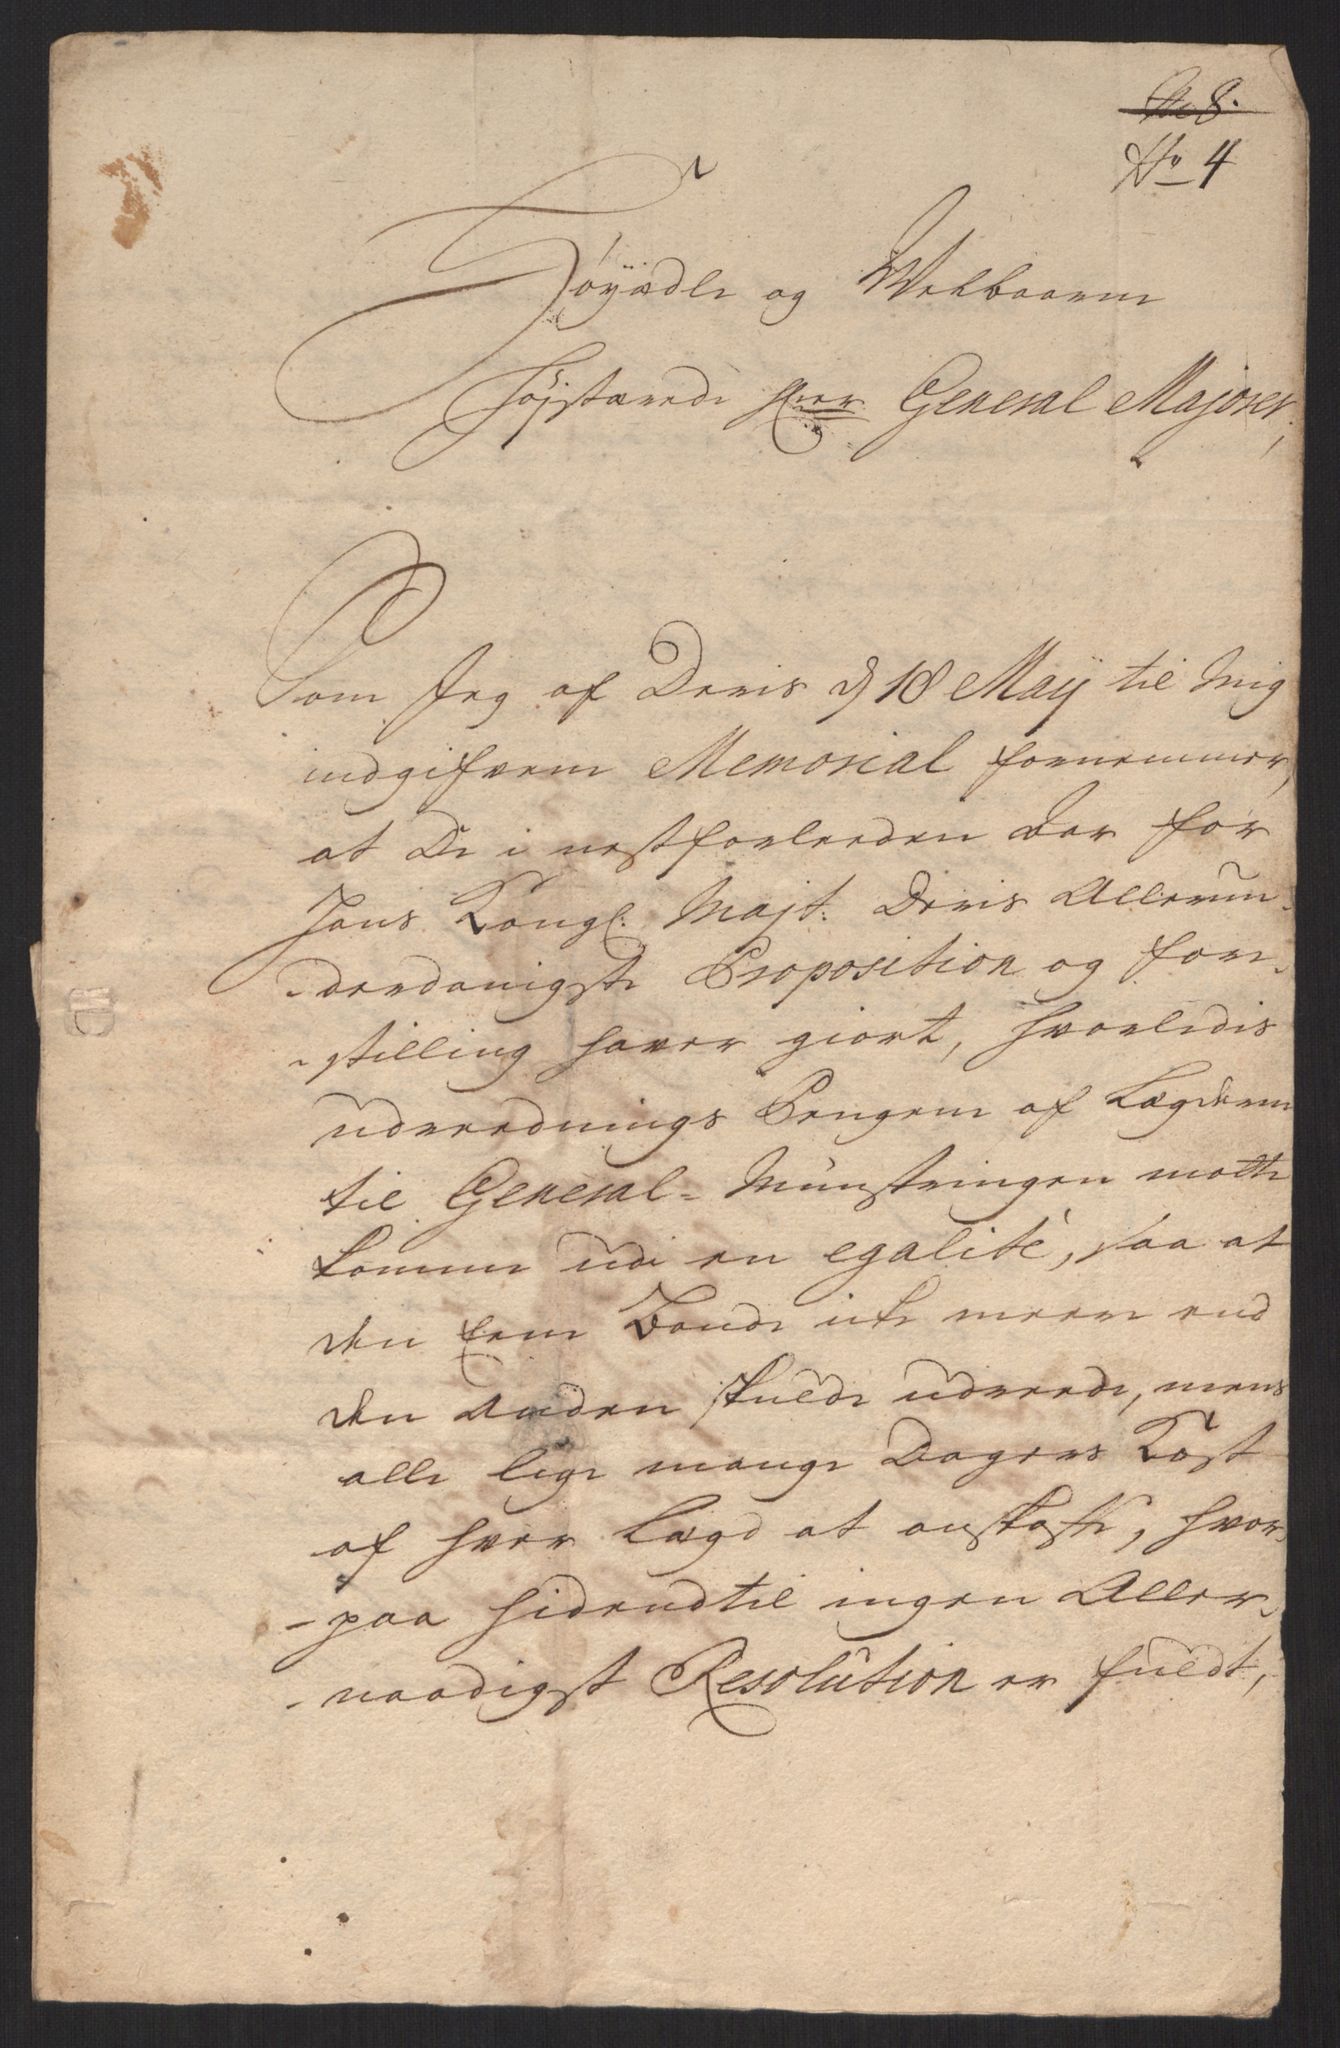 No 8.
No 4
Höyædle og Welbaarne
Højstærede Herr General Majorer,
Som Jeg af Deris d 18 Maij til Mig
indgifvene Memorial fornemmer,
at De i nestforleeden Aar for
Hans Kongl. Mayt: Deris Allerun-
-derdanigste Proposition og fore-
-stilling haver giort, hvorledis
udreednings Pengene af Lægderne
til General-Münstringen motte
komme udi en egalité, saa at
den eene Bonde icke meere end
den Anden skulde udreede, mens
alle lige mange Dagers Kost
af hver Lægd at anskaffe, hvor-
-paa hidendtil ingen Aller-
-naadigst Resolution er fuldt,